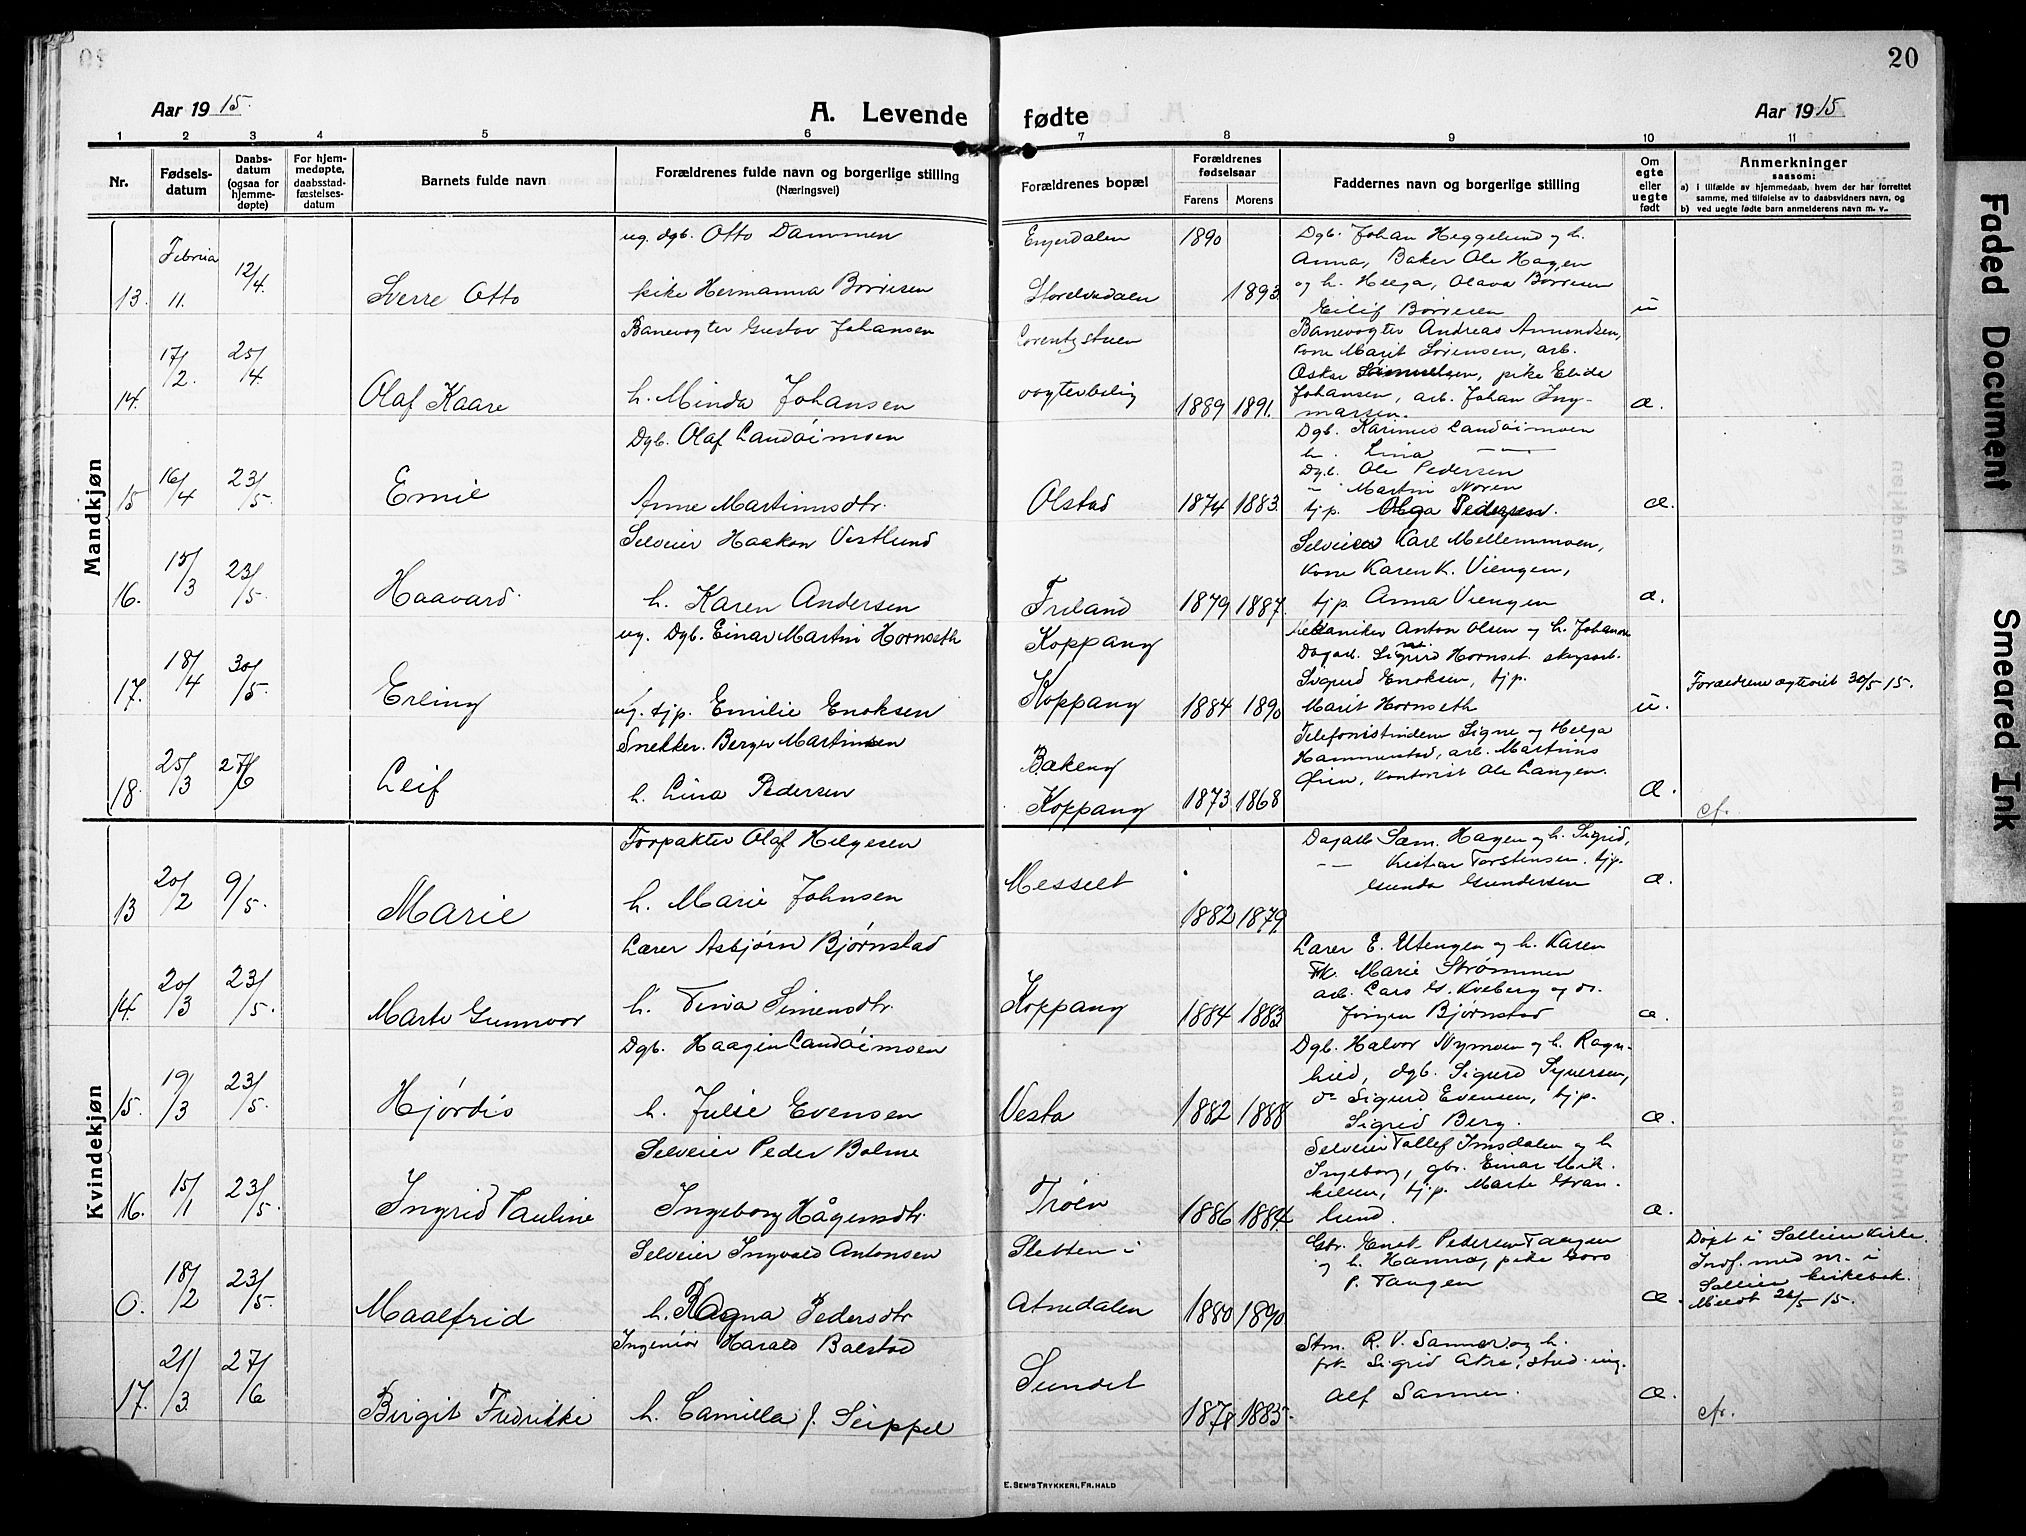 20
Aar 1915.
A. Levende fødte
Aar 1915
1 2 3 4 5 6 7 8 9 10 11
Nr.
Fødsels-
datum
Daabs-
datum
(ogsaa for
hjemme-
døpte)
For hjem-
medøpte,
daabsstad-
fæstelses-
datum
Barnets fulde navn
Forældrenes fulde navn og borgerlige stilling
(Næringsvei)
Forældrenes bopæl
Forældrenes
fødselsaar
Farens Morens
Faddernes navn og borgerlige stilling
Om
egte
eller
uegte
født
Anmerkninger
saasom:
a) i tilfælde av hjemmedaab, hvem der har forrettet
samme, med tilføielse av to daabsvidners navn, og
b) ved uegte fødte barn anmelderens navn m. v.
Mandkjøn
13. Februa 11. 12/4. Sverre Otto
ug. dgb. Otto Dammen
pike Hermanna Børresen
Enjerdalen
Storelvedalen
1890 1893
Dgb. Johan Heggelund og h.
Anna, Baker Ole Hagen
og h. Helga, Olava Børresen
Eilif Børresen
u
14. 17/2. 25/4. Olaf Kaare
Banevogter Gustav Johansen
h. Minda Johansen
Lorentzstuen
vogterbolig
1889 1891.
Banevogter Andreas Amundsen,
kone Marit Sørensen, arb.
Oskar Samuelsen, pike Elida
Johansen, arb. Johan Ing-
marsen.
æ.
15 16/4 23/5. Emil
Dgb. Olaf Landåimoen
Anne Martinusdtr.
Olstad
1874 1883.
Dgb. Karinus Landåimoen
h. Lina — —
Dgb. Ole Pedersen
" Martin Noren
tjp. Olga Pedersen.
æ.
16. 15/3 23/5. Haavard.
Selveier Haakon Vestlund
h. Karen Andersen
Friland
1879 1887.
Selveier Karl Mellemmoen,
kone Karen K. Viengen,
tjp Anna Viengen
æ.
17. 18/4 30/5. Erling
ug. Dgb. Einar Martin Hornseth
ug. tjp. Emilie Enoksen
Koppang
Koppang
1884 1890
Mekaniker Anton Olsen og h. Johanne
Dagarb. Sigurd Hornset. skogsarb.
Sigurd Enoksen, tjp.
Marit Hornseth
u.
Forældrene egteviet 30/5 15.
18. 25/3 27/6 Leif
Snekker. Berger Martinsen
h. Lina Pedersen
Bakeng
Koppang
1873 1868
Telefonistinderne Signe og Helga
Hammerstad, arb. Martinus
Øien, kontorist Ole Langen.
Æ.
cfr.
Kvindekjøn
13 20/2 9/5. Marie
Forpakter Olaf Helgesen
h. Marie Johnsen
Messelt
1882 1879.
Dagarb Sam. Hagen og h. Sigrid,
— — Kristian Torstensen. tjp.
Gunda Gundersen
æ.
14. 20/3 23/5. Marte Gunnvor
Lærer Asbjørn Bjørnstad
h. Tina Simensdtr.
Koppang
1884 1883
Lærer E. Utengen og h. Karen
Frk. Marie Strømmen
arb. Lars G. Kveberg og do.
Jørgen Bjørnstad
æ.
15. 19/3 23/5. Hjørdis
Dgb. Haagen Landåimoen
h. Julie Evensen
Vesta
1882 1888
Dgb. Halvor Nymoen og h. Ragn-
hild, dgb. Sigurd Syversen,
do Sigurd Evensen, tjp.
Sigrid Berg.
Æ.
16. 15/1 23/5. Ingrid Pauline
Selveier Peder Bolme
Ingeborg Hågensdtr.
Trøen
1886 1884.
Selveier Tollef Imsdalen og h
Ingeborg, gbr. Einar Mik-
kelsen, tjp. Marte Gran-
lund.
æ.
0. 18/2 23/5. Maalfrid
Selveier Ingvald Antonsen
h. Ragna Pedersdtr
Sletten i
Atnedalen
1880 1890
Gbr. Enok Pedersen Tangen
og h. Hanna, pike Goro
P. Tangen
Æ.
Døpt i Sollien kirke.
Indf. med nr. i
Sollien kirkebok.
Meldt 26/5 15.
17. 21/3. 27/6 Birgit Fredrikke
Ingeniør Harald Balstad
h. Camilla J. Seippel
Sundet
1878 1885.
Stm. R. V. Sanner og h.
frk. Sigrid Atre, stud. ing.
Alf Sanner.
Æ.
cfr.
E. SEM'S TRYKKERI, FR.HALD
Faded Document
Smeared Ink